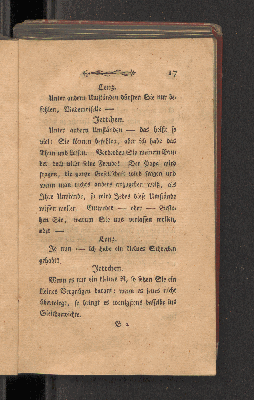 17
Lenz.
Unter andern Umständen dürften Sie nur be-
fehlen, Mademoiselle —
Jettchen.
Unter andern Umständen — das heißt so
viel: Sie können befehlen, aber ich habe das
Thun und Lassen. Verderben Sie meinem Bru-
der doch nicht seine Freude! Der Papa wird
fragen, die ganze Gesellschaft wird fragen und
wenn man nichts anders angegeben weiß, als
Ihre Umstände, so wird Jedes diese Umstände
wissen wollen. Entweder — oder —
hen Sie, warum Sie uns verlassen wollen,
oder —
Lenz.
Je nun — ich habe ein kleines Schrecken
gehabt.
Jettchen.
Wenn es nur ein kleines ist, so sehen Sie ein
kleines Vergnügen daran: wenn es jenes nicht
überwiegt, so bringt es wenigstens dasselbe ins
Gleichgewichte.
B 2